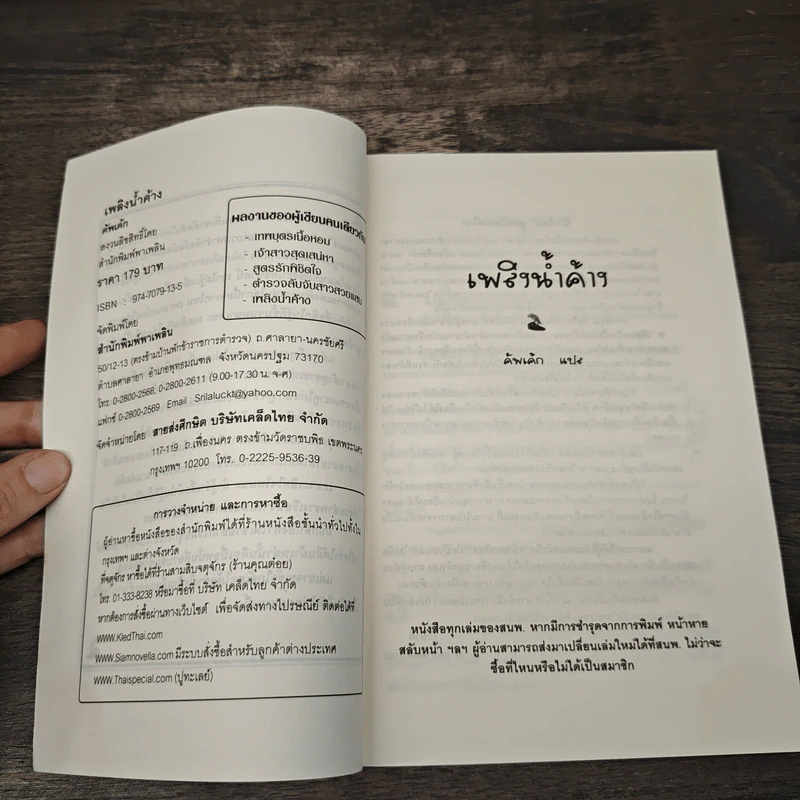 เพลิงน้ำค้าง
คัพเค้ก
สงวนลิขสิทธิ์โดย
สำนักพิมพ์พาเพลิน
ราคา 179 บาท
ISBN : 974-7079-13-5
ผลงานของผู้เขียนคนเดียวกัน
- เทพบุตรเนื้อหอม
- เจ้าสาวสุดเสน่หา
- สูตรรักพิชิตใจ
- ตำรวจลับจับสาวสวยแสบ
- เพลิงน้ำค้าง
จัดพิมพ์โดย
สำนักพิมพ์พาเพลิน
50/12-13 (ตรงข้ามบ้านพักข้าราชการตำรวจ) ถ.ศาลายา-นครชัยศรี
ตำบลศาลายา อำเภอพุทธมณฑล จังหวัดนครปฐม 73170
โทร. 0-2800-2568, 0-2800-2611 (9.00-17.30 น. จ-ศ)
แฟกซ์ 0-2800-2569 Email : Srilaluckt@yahoo.com
จัดจำหน่ายโดย สายส่งศึกษิต บริษัทเคล็ดไทย จำกัด
117-119 ถ.เฟื่องนคร ตรงข้ามวัดราชบพิธ เขตพระนคร
กรุงเทพฯ 10200 โทร. 0-2225-9536-39
การวางจำหน่าย และการหาซื้อ
ผู้อ่านหาซื้อหนังสือของสำนักพิมพ์ได้ที่ร้านหนังสือชั้นนำทั่วไปทั้งใน
กรุงเทพฯ และต่างจังหวัด
ที่จตุจักร หาซื้อได้ที่ร้านสามสิบจตุจักร (ร้านคุณต๋อย)
โทร. 01-333-8238 หรือมาซื้อที่ บริษัท เคล็ดไทย จำกัด
หากต้องการสั่งซื้อผ่านทางเว็บไซต์ เพื่อจัดส่งทางไปรษณีย์ ติดต่อได้ที่
www.KledThai.com
www.Siamnovella.com มีระบบสั่งซื้อสำหรับลูกค้าต่างประเทศ
www.Thaispecial.com (ปูทะเลย์)
เพลิงน้ำค้าง
คัพเค้ก แปล
หนังสือทุกเล่มของสนพ. หากมีการชำรุดจากการพิมพ์ หน้าหาย
สลับหน้า ฯลฯ ผู้อ่านสามารถส่งมาเปลี่ยนเล่มใหม่ได้ที่สนพ. ไม่ว่าจะ
ซื้อที่ไหนหรือไม่ได้เป็นสมาชิก